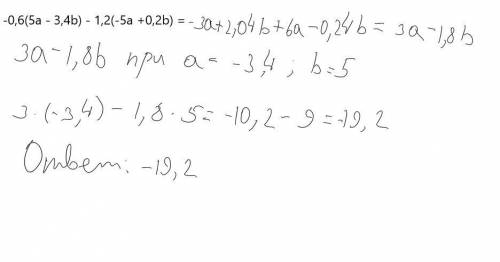 -0,6(5a - 3,4b) - 1,2(-5a +0,2b) = -3a+2,04b+6a-0,24b = 3a-1,8b
3a-1,8b при a= -3,4 ; b=5
3·(-3,4) - 1,8·5= -10,2-9=-19,2
Ответ: -19,2